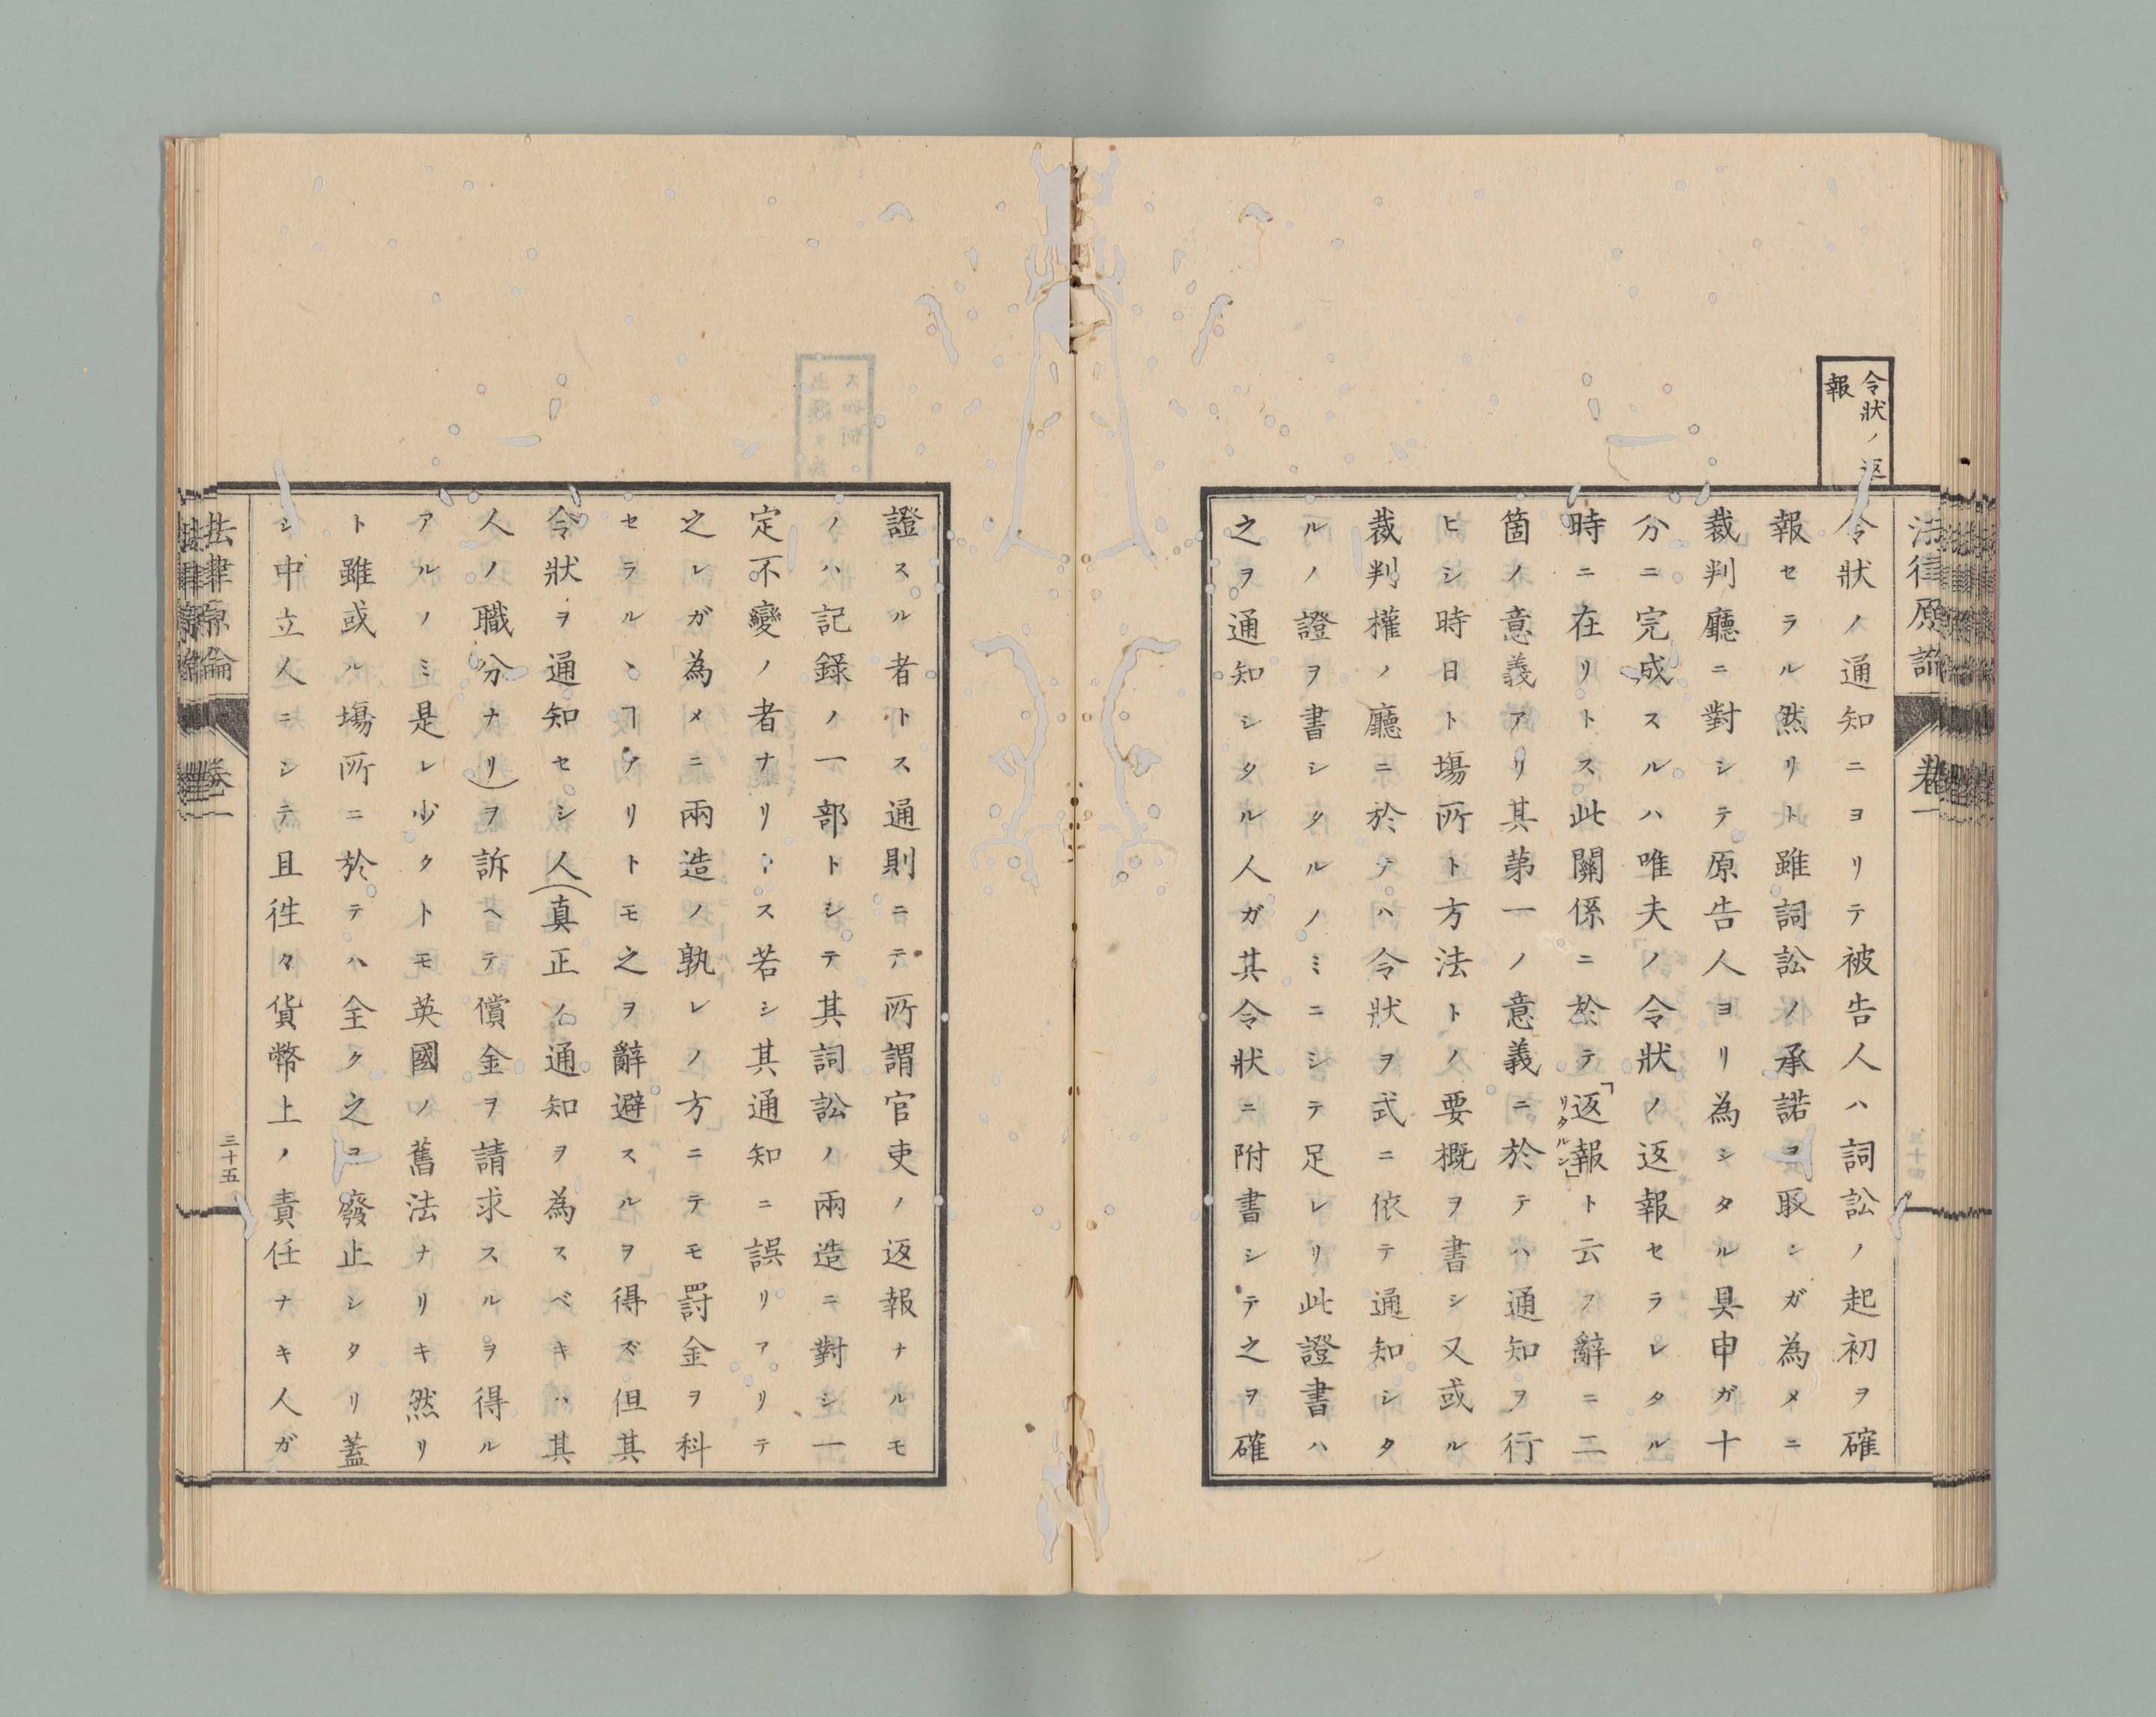 法律原論
卷一
令狀ノ返
報
令狀ノ通知ニヨリテ被告人ハ詞訟ノ起初ヲ確
報セラル然リト雖詞訟ノ承諾ヲ取ンガ為メニ
裁判廳ニ對シテ原告人ヨリ為シタル具申ガ十
分ニ完成スルハ唯夫ノ令狀ノ返報セラレタル
時ニ在リトス此關係ニ於テ「返報」ト云フ辭ニ二
リタルン
箇ノ意義アリ其苐一ノ意義ニ於テハ通知ヲ行
ヒシ時日ト塲所ト方法トノ要概ヲ書シ又或ル
裁判權ノ廳ニ於テハ令狀ヲ式ニ依テ通知シタ
ルノ證ヲ書シタルノミニシテ足レリ此證書ハ
之ヲ通知シタル人ガ其令狀ニ附書シテ之ヲ確
證スル者トス通則ニテ所謂官吏ノ返報ナルモ
ノハ記録ノ一部トシテ其詞訟ノ兩造ニ對シ一
定不變ノ者ナリトス若シ其通知ニ誤リアリテ
之レガ為メニ兩造ノ孰レノ方ニテモ罸金ヲ科
セラルヽヿアリトモ之ヲ辭避スルヲ得ズ但其
令狀ヲ通知セシ人(真正ノ通知ヲ為スベキハ其
人ノ職分ナリ)ヲ訴ヘテ償金ヲ請求スルヲ得ル
アルノミ是レ少クトモ英國ノ舊法ナリキ然リ
ト雖或ル塲所ニ於テハ全ク之ヲ廢止シタリ蓋
シ中立人ニシテ且徃々貨幣上ノ責任ナキ人ガ
法律原論
卷一
三十五